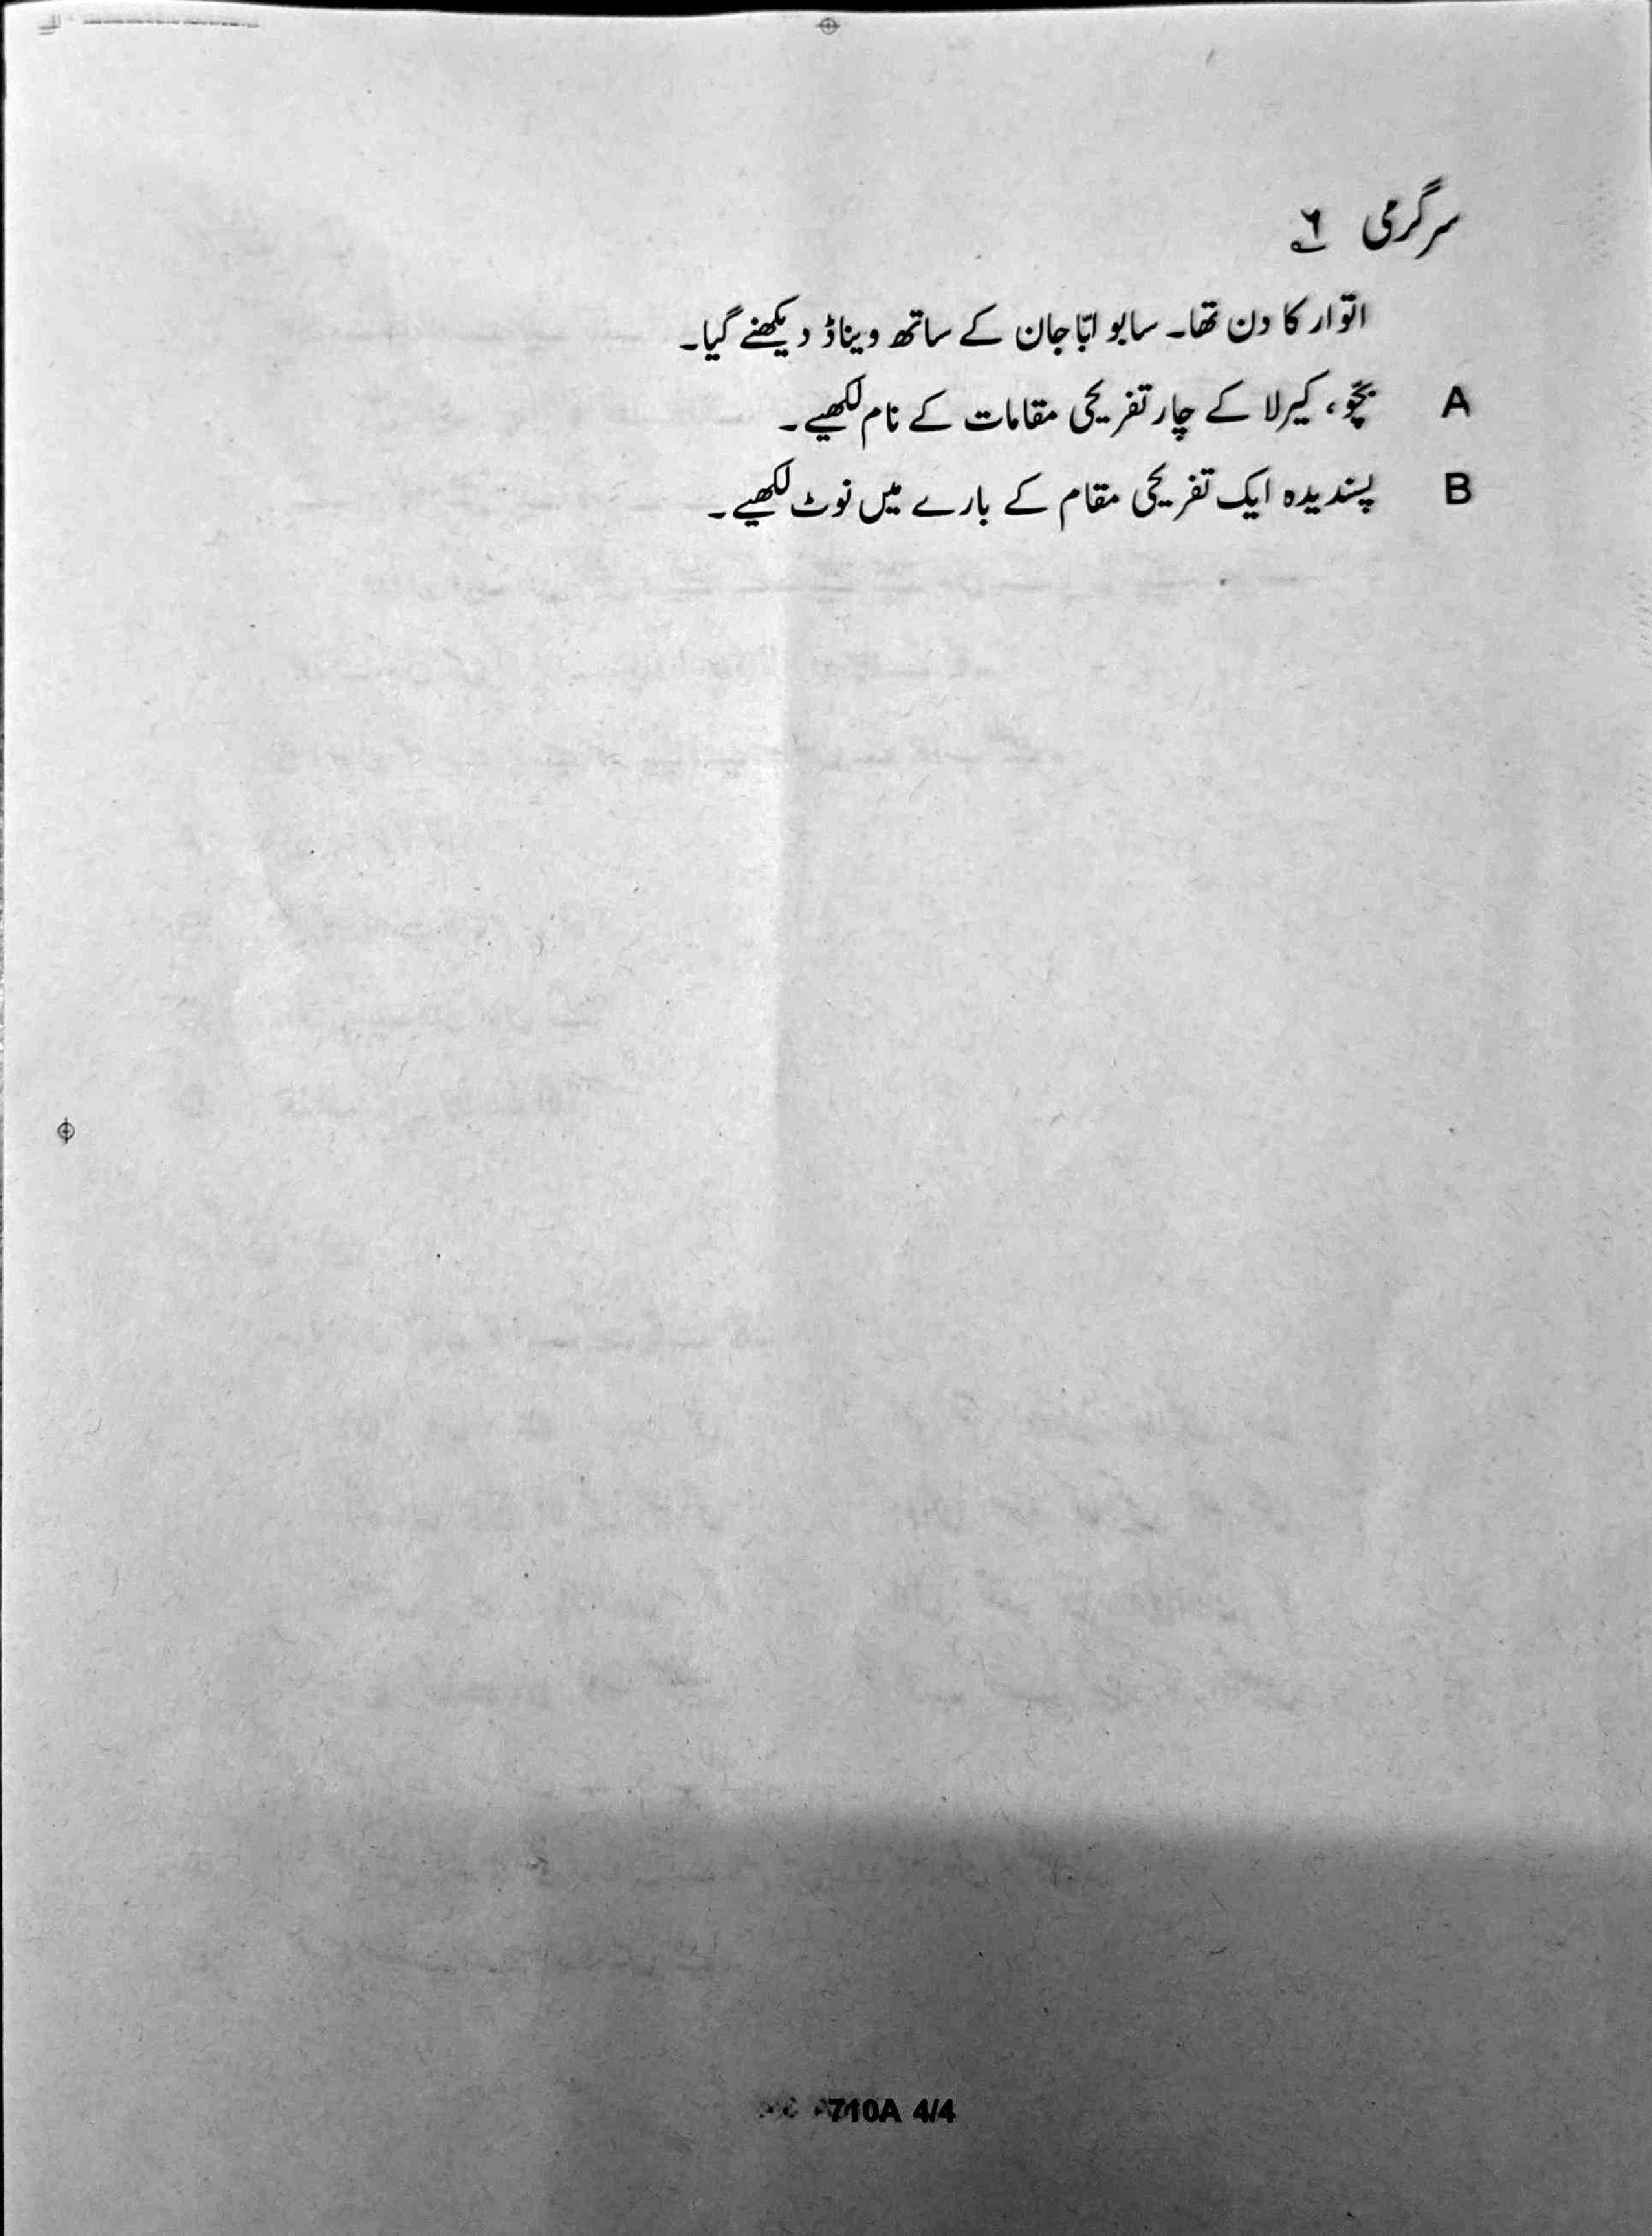 سرگرمی ۶
اتوار کا دن تھا۔ سابو ابّا جان کے ساتھ ویناڈ دیکھنے گیا۔
A بچّو، کیرلا کے چار تفریحی مقامات کے نام لکھیے۔
B پسندیدہ ایک تفریحی مقام کے بارے میں نوٹ لکھیے۔
710A 4/4